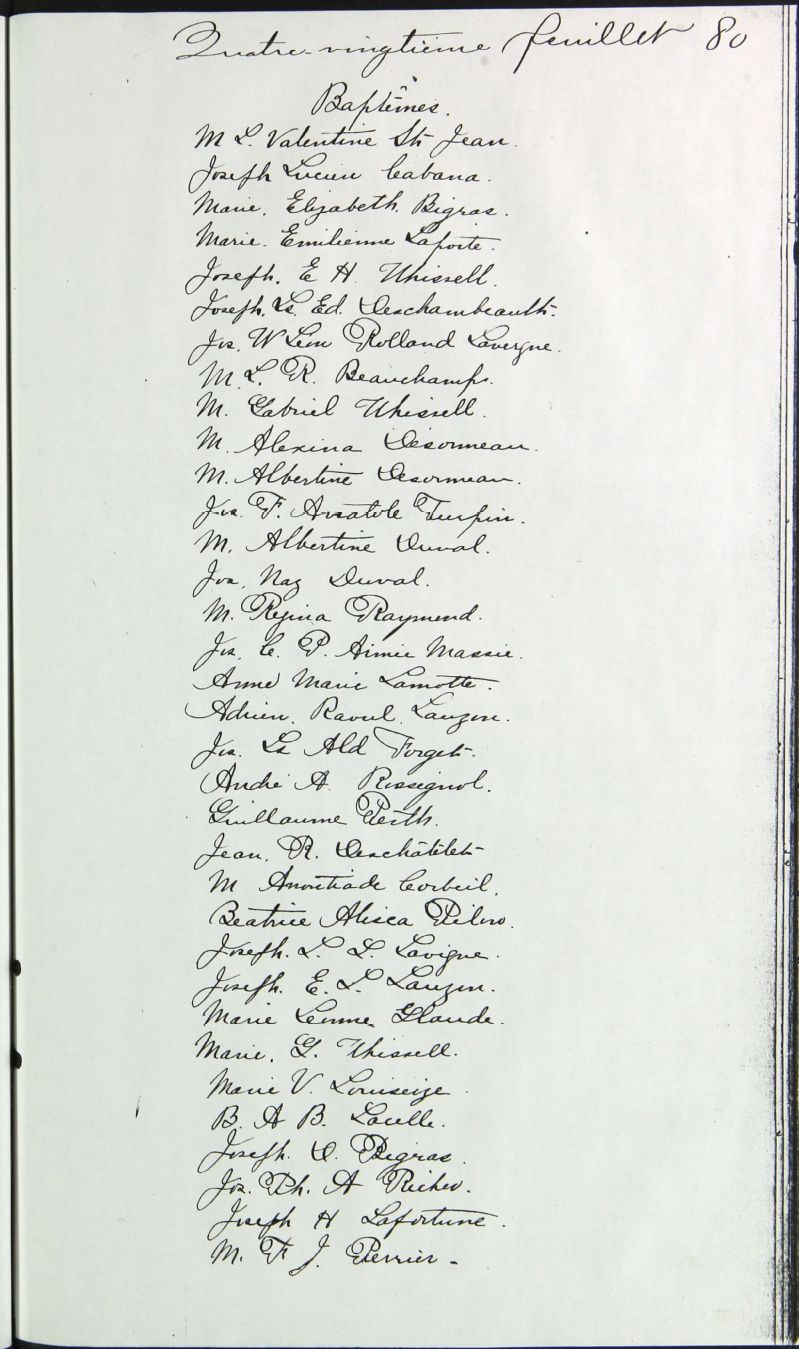 Quatre-vingtième feuillet 80
Baptêmes.
M L. Valentine St Jean.
Joseph Lucien Cabana.
Marie. Elizabeth. Bigras.
Marie. Emilienne Laporte.
Joseph. E H. Whissell.
Joseph. Ls. Ed. Deschambeault.
Jos. W Léon Rolland Lavergne.
M. L. R. Beauchamp.
M. Gabriel Whissell.
M. Alexina Desormeau.
M. Albertine Desormeau.
Jos. F. Anatole Turpin.
M. Albertine Duval.
Jos. Naz Duval.
M. Regina Raymond.
Jos. C. P. Aimée Massie.
Anne Marie Lamotte.
Adrien. Raoul. Lauzon.
Jos. Ls Ald Forget.
André A. Rossignol.
Guillaume Perth.
Jean. R. Deschâtelet
M Corbeil.
Beatrice Pilon.
Joseph. L. L. Lavigne.
Joseph. E. L. Lauzon.
Marie Glaude.
Marie. G. Whissell.
Marie V. Louiseize.
B. A B. Lacelle.
Joseph. D. Bigras.
Jos. Ph. A Richer.
Joseph H Lafortune.
M. F J. Perrier.